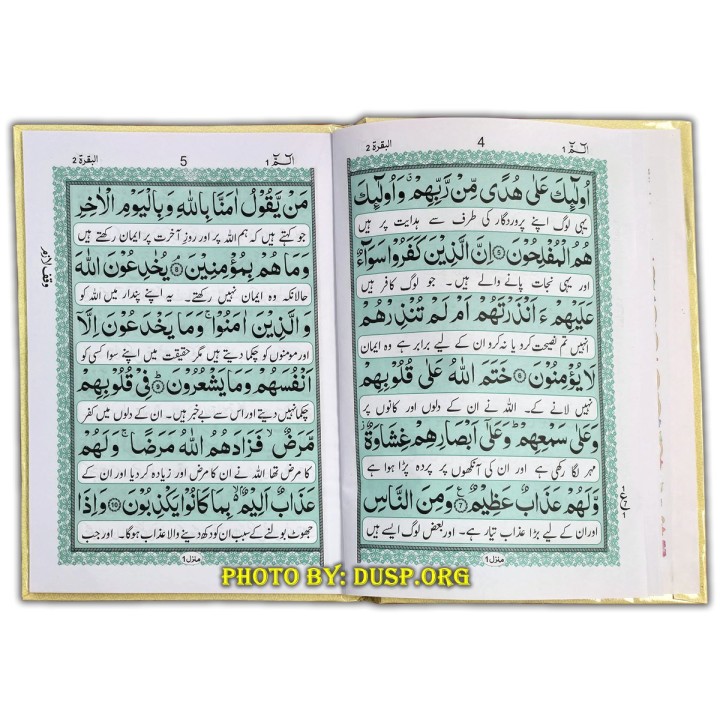 الٓمّٓ 1
4
البقرة 2
اُولٰٓئِكَ عَلٰى هُدًى مِّنْ رَّبِّهِمْ ۗ وَاُولٰٓئِكَ
یہی لوگ اپنے پروردگار کی طرف سے ہدایت پر ہیں
هُمُ الْمُفْلِحُوْنَ ⑤ اِنَّ الَّذِيْنَ كَفَرُوْا سَوَآءٌ
اور یہی نجات پانے والے ہیں۔ جو لوگ کافر ہیں
عَلَيْهِمْ ءَاَنْذَرْتَهُمْ اَمْ لَمْ تُنْذِرْهُمْ
انہیں تم نصیحت کرو یا نہ کرو ان کے لیے برابر ہے وہ ایمان
لَا يُؤْمِنُوْنَ ⑥ خَتَمَ اللّٰهُ عَلٰى قُلُوْبِهِمْ
نہیں لانے کے۔ اللہ نے ان کے دلوں اور کانوں پر
وَعَلٰى سَمْعِهِمْ ؕ وَعَلٰٓى اَبْصَارِهِمْ غِشَاوَةٌ ؗ
مہر لگا رکھی ہے اور ان کی آنکھوں پر پردہ پڑا ہوا ہے
وَّلَهُمْ عَذَابٌ عَظِيْمٌ ⑦ وَمِنَ النَّاسِ
اور ان کے لیے بڑا عذاب تیار ہے۔ اور بعض لوگ ایسے ہیں
منزل 1
الٓمّٓ 1
5
البقرة 2
مَنْ يَّقُوْلُ اٰمَنَّا بِاللّٰهِ وَبِالْيَوْمِ الْاٰخِرِ
جو کہتے ہیں کہ ہم اللہ پر اور روزِ آخرت پر ایمان رکھتے ہیں
وَمَا هُمْ بِمُؤْمِنِيْنَ ⑧ يُخٰدِعُوْنَ اللّٰهَ
حالانکہ وہ ایمان نہیں رکھتے۔ یہ اپنے پندار میں اللہ کو
وَالَّذِيْنَ اٰمَنُوْا ۚ وَمَا يَخْدَعُوْنَ اِلَّاۤ
اور مومنوں کو چکما دیتے ہیں مگر حقیقت میں اپنے سوا کسی کو
اَنْفُسَهُمْ وَمَا يَشْعُرُوْنَ ⑨ فِيْ قُلُوْبِهِمْ
چکما نہیں دیتے اور اس سے بے خبر ہیں۔ ان کے دلوں میں کفر
مَّرَضٌ ۙ فَزَادَهُمُ اللّٰهُ مَرَضًا ۚ وَلَهُمْ
کا مرض تھا اللہ نے ان کا مرض اور زیادہ کر دیا اور ان کے
عَذَابٌ اَلِيْمٌۢ ۙ بِمَا كَانُوْا يَكْذِبُوْنَ ⑩ وَاِذَا
جھوٹ بولنے کے سبب ان کو دکھ دینے والا عذاب ہوگا۔ اور جب
منزل 1
وقف لازم
PHOTO BY: DUSP.ORG